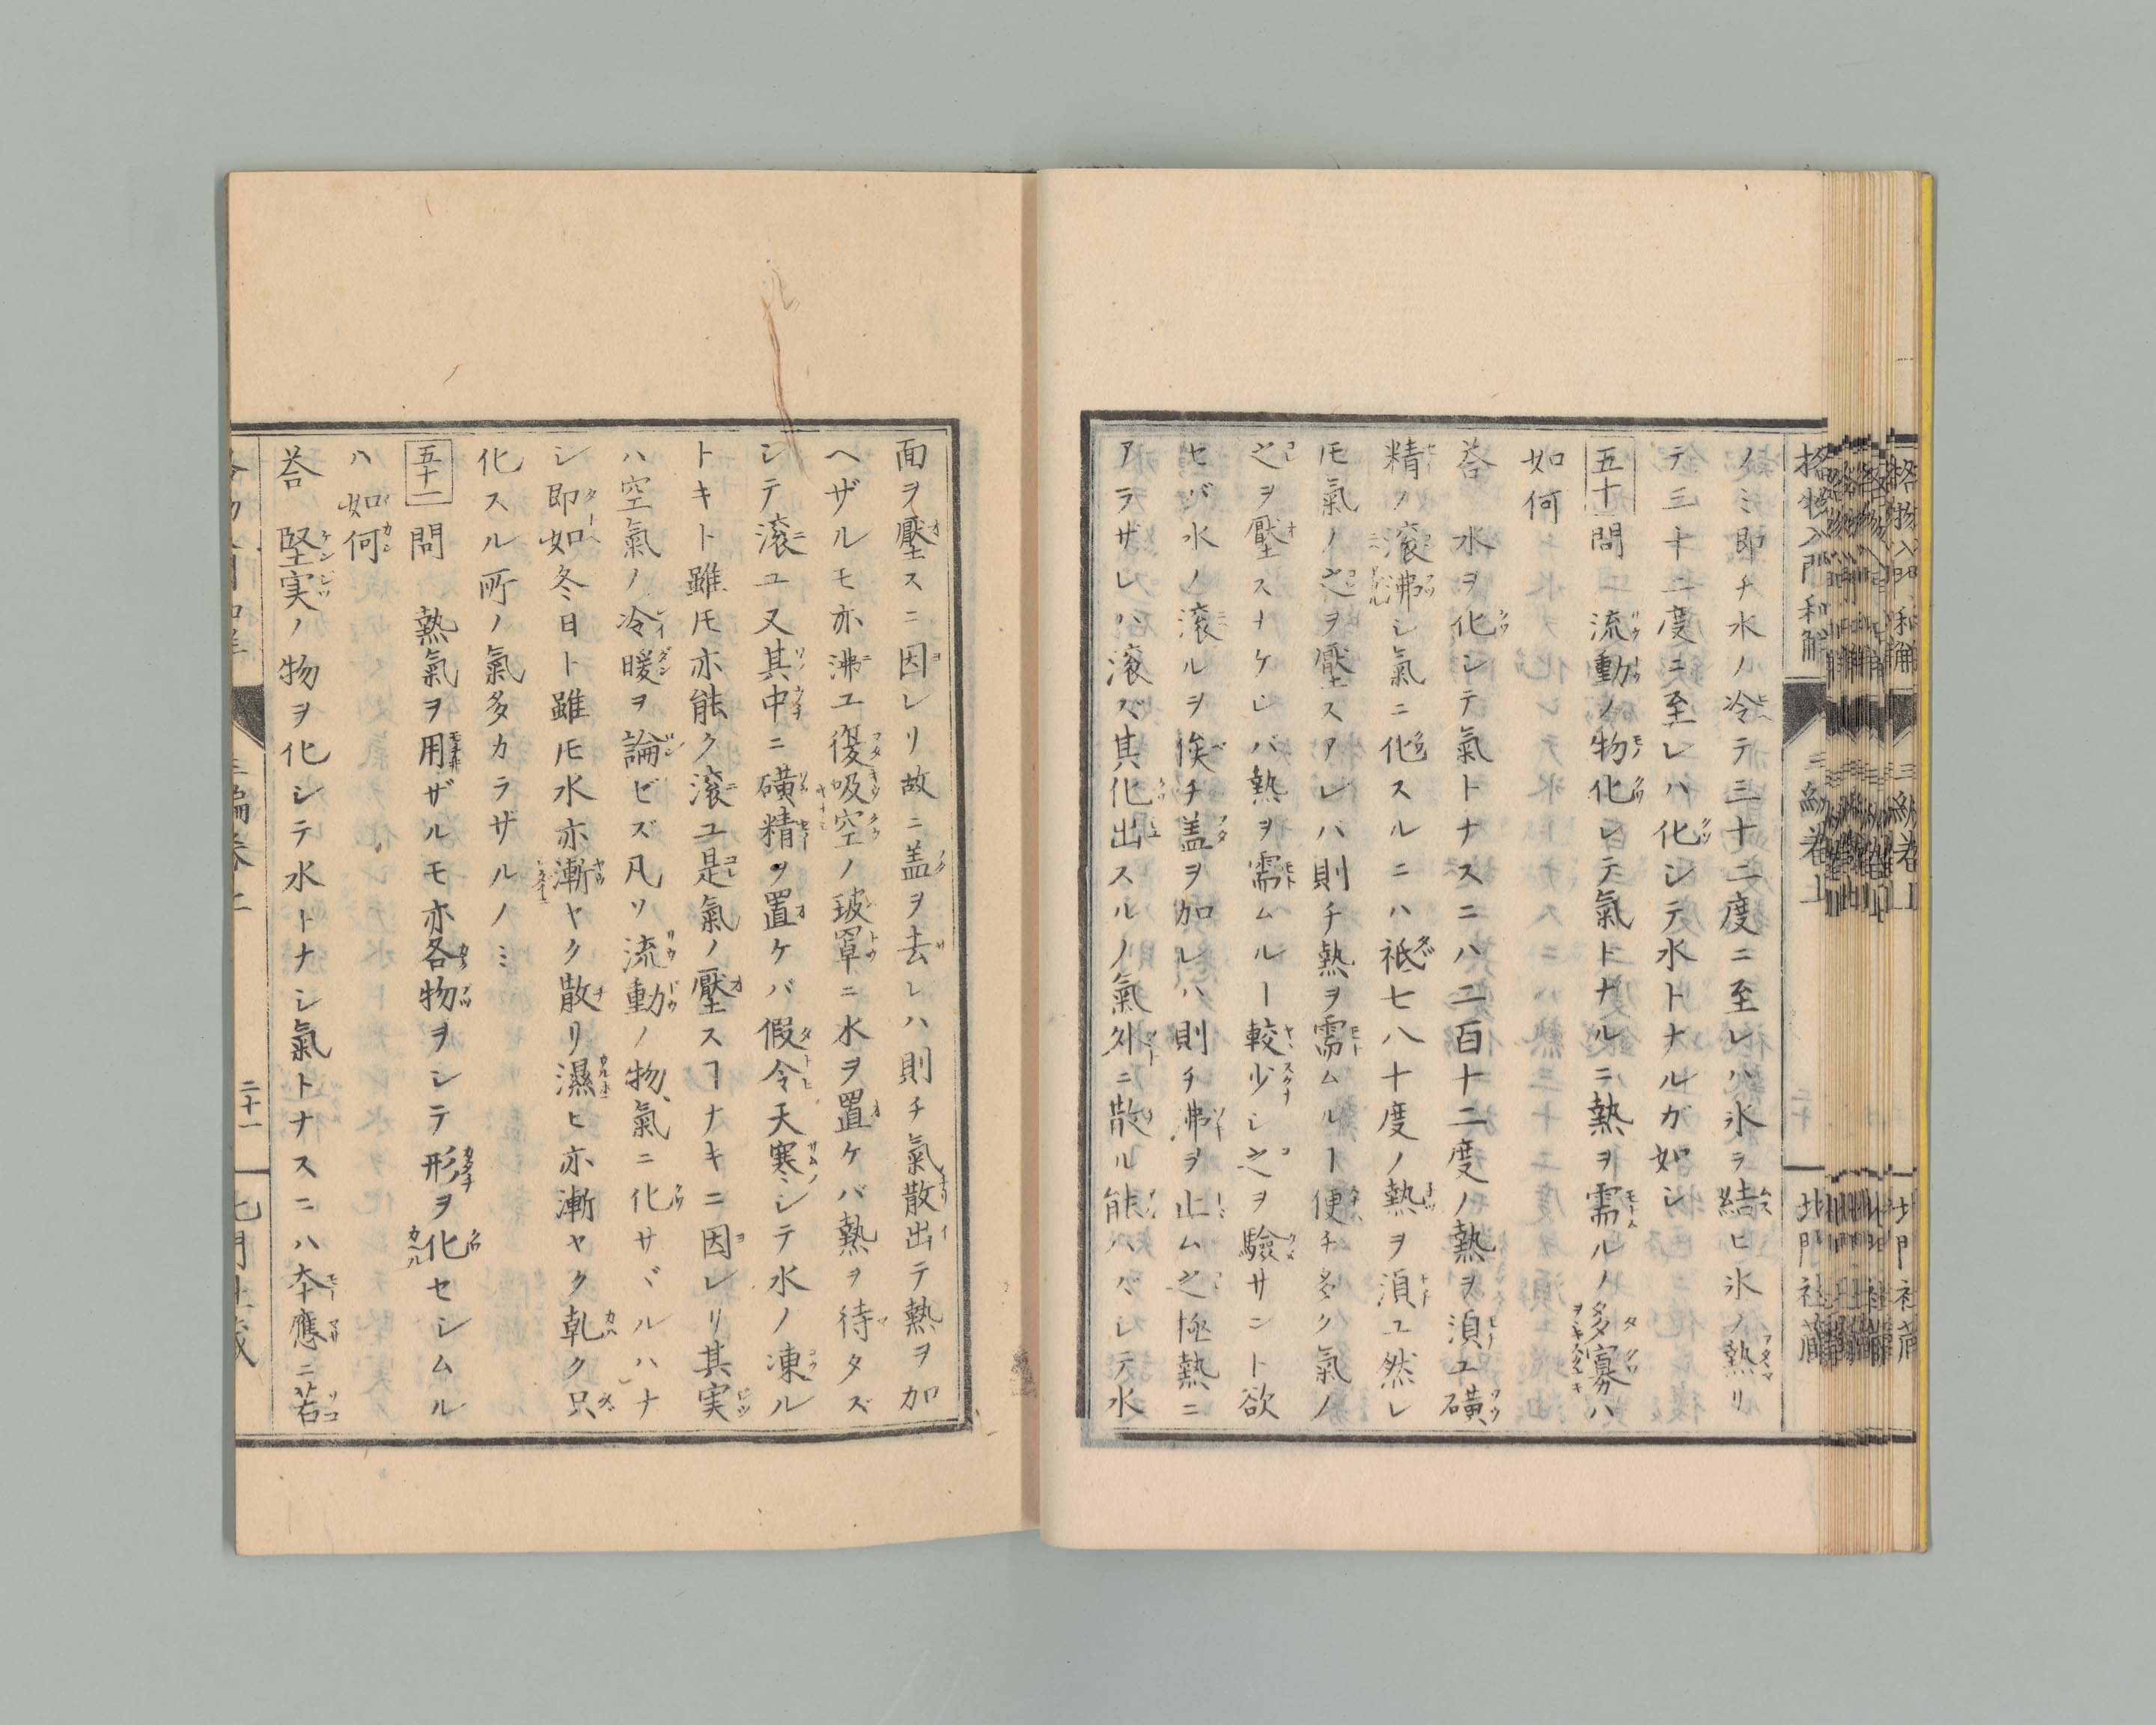 格物入門和解
三編巻上
北門社蔵
ノミ即チ水ノ冷テ三十二度ニ至レハ氷ヲ結ヒ氷ノ熱リ
テ三十二度ニ至レハ化シテ水トナルガ如シ
五十 問 流動ノ物化シテ氣トナルニ熱ヲ需ルノ多寡ハ
如何
荅 水ヲ化シテ氣トナスニハ二百十二度ノ熱ヲ湏ユ磺
精ノ滚沸シ氣ニ化スルニハ祇七八十度ノ熱ヲ湏ユ然レ
𪜈氣ノ之ヲ壓スアレバ則チ熱ヲ需ムルヿ便チ多ク氣ノ
之ヲ壓スナケレバ熱ヲ需ムルヿ較少シ之ヲ驗サント欲
セバ水ノ滚ルヲ俟チ盖ヲ加レハ則チ沸ヲ止ム之極熱ニ
アラザレハ滚ズ其化出スルノ氣外ニ散ル能ハズシテ水
面ヲ壓スニ因レリ故ニ盖ヲ去レハ則チ氣散出テ熱ヲ加
ヘザルモ亦沸ユ復吸空ノ玻罩ニ水ヲ置ケバ熱ヲ待タズ
シテ滚ユ又其中ニ磺精ヲ置ケバ假令天寒シテ水ノ凍ル
トキト雖𪜈亦能ク滚ユ是氣ノ壓スヿナキニ因レリ其実
ハ空氣ノ冷暖ヲ論ゼズ凡ソ流動ノ物氣ニ化サヾルハナ
シ即如冬日ト雖𪜈水亦漸ヤク散リ濕ヒ亦漸ヤク乹ク只
化スル所ノ氣多カラザルノミ
五十一 問 熱氣ヲ用ザルモ亦各物ヲシテ形ヲ化セシムル
ハ如何
荅 堅実ノ物ヲ化シテ水トナシ氣トナスニハ夲應ニ若
三編巻上
二十一